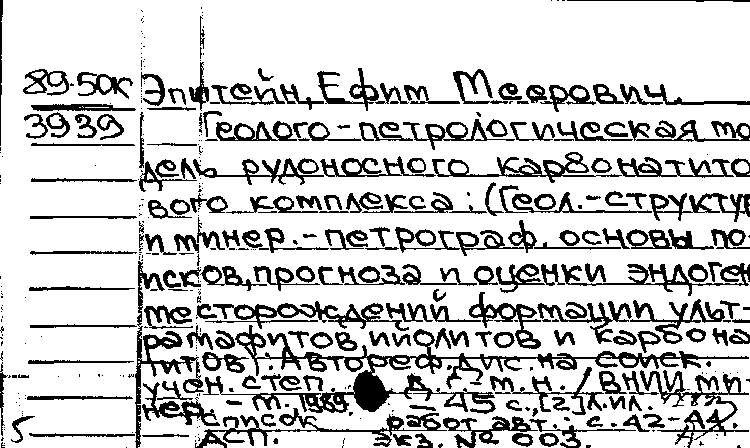 89-50К Эпштейн, Ефим Меерович.
3939 Геолого-петрологическая мо
дель рудоносного карбонатито
вого комплекса: (Геол.-структур
и минер.-петрограф. основы по-
исков, прогноза и оценки эндоген
месторождений формации ульт-
рамафитов, ийолитов и карбона
титов): Автореф. дис. на соиск.
учен. степ. д. г.-м. н. / ВНИИ ми-
нер. - М. 1989. - 45 с., [2] л. ил.
5 Список работ авт.: с. 42-44.
АСП. экз. № 003.